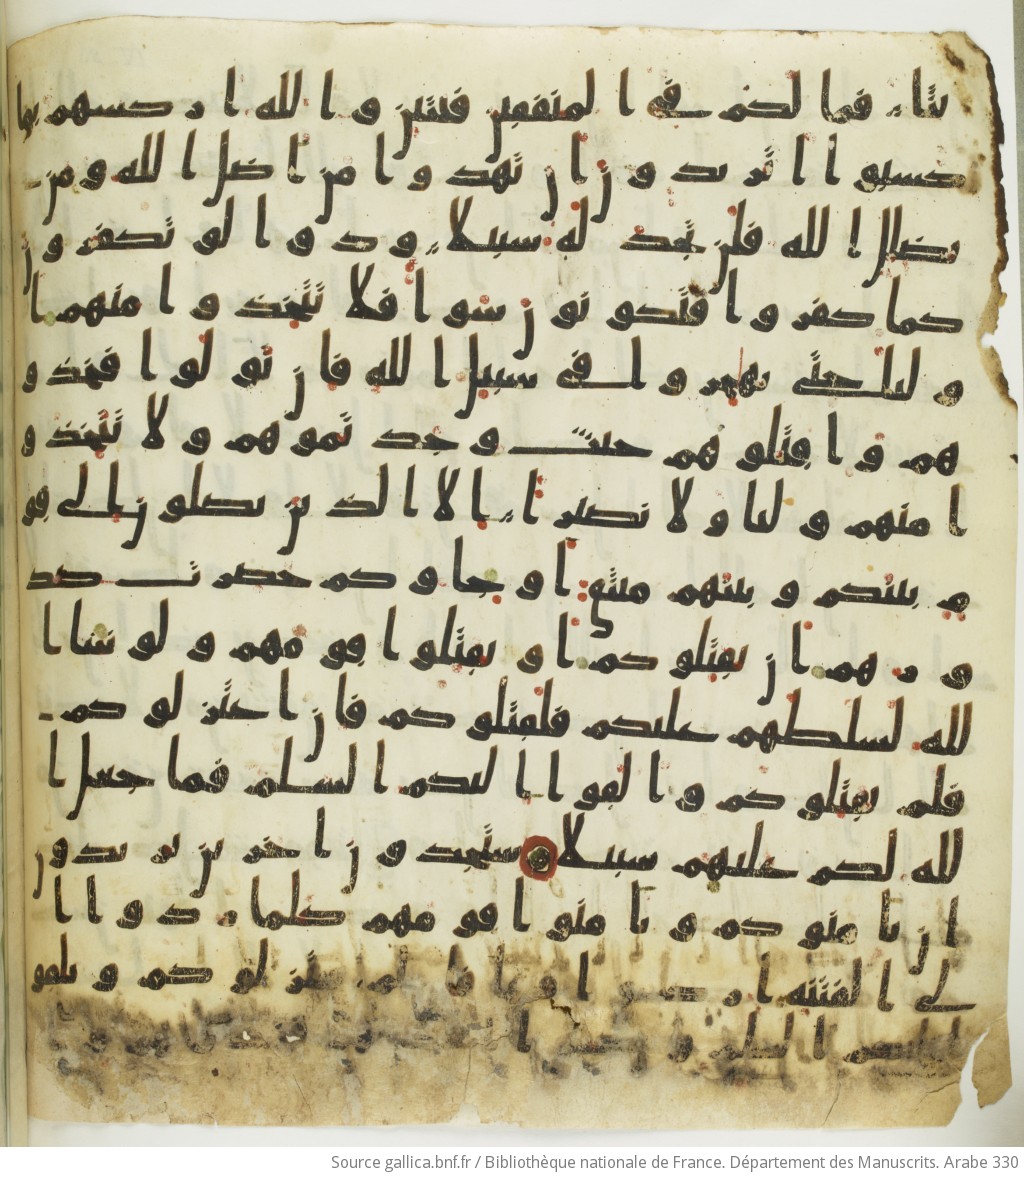 يثا فما لكم في المنفقين فئتين والله اركسهم بما
كسبوا اتريدون ان تهدوا من اضل الله ومن
يضلل الله فلن تجد له سبيلا ودوا لو تكفرون
كما كفروا فتكونون سوا فلا تتخذوا منهم ا
وليا حتى يهجروا في سبيل الله فان تولوا فخذو
هم واقتلوهم حيث وجدتموهم ولا تتخذوا
منهم وليا ولا نصيرا الا الذين يصلون الى قو
م بينكم وبينهم ميثق او جاوكم حصرت صد
ورهم ان يقتلوكم او يقتلوا قومهم ولو شا ا
لله لسلطهم عليكم فلقتلوكم فان اعتزلوكم
فلم يقتلوكم والقوا اليكم السلم فما جعل ا
لله لكم عليهم سبيلا ستجدون اخرين يريدون
ان يامنوكم ويامنوا قومهم كلما ردوا ا
لى الفتنة اركسوا فيها فان لم يعتزلوكم ويلقوا
اليكم السلم ويكفوا
Source gallica.bnf.fr / Bibliothèque nationale de France. Département des Manuscrits. Arabe 330